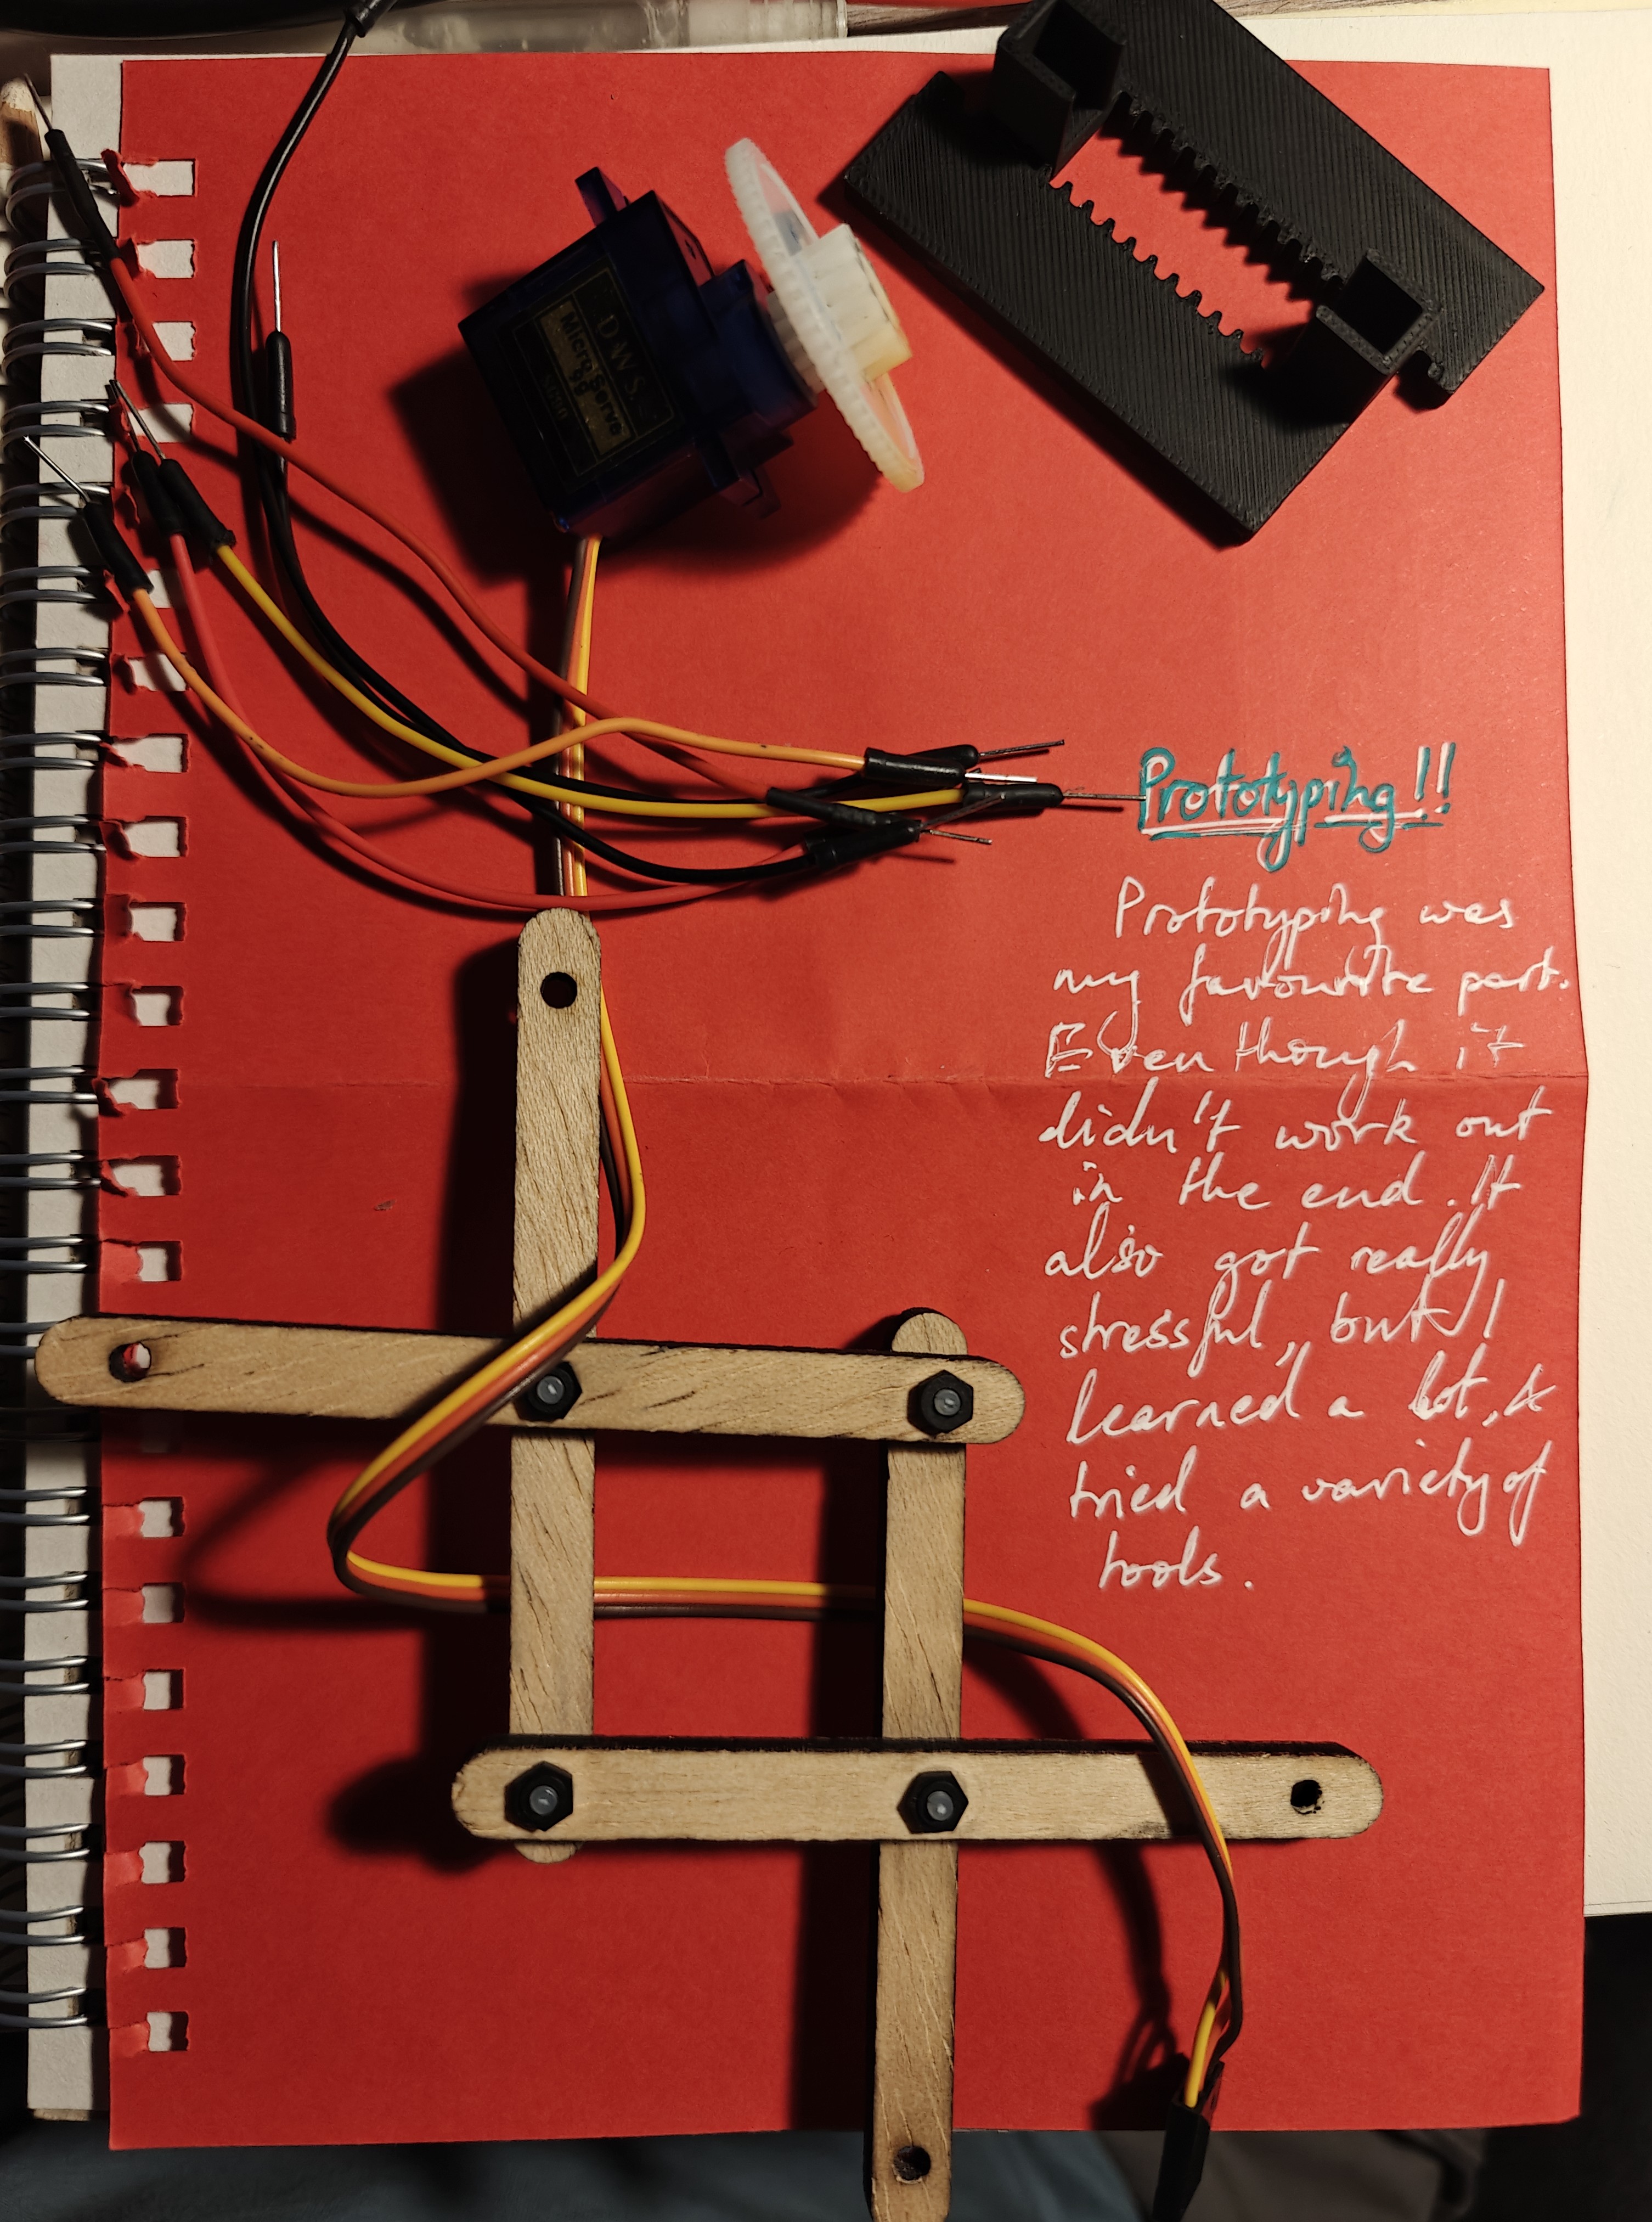 Micro Servo
9g
SG90
Prototyping!!
Prototyping was
my favourite part.
Even though it
didn't work out
in the end. It
also got really
stressful, but I
learned a lot, &
tried a variety of
tools.